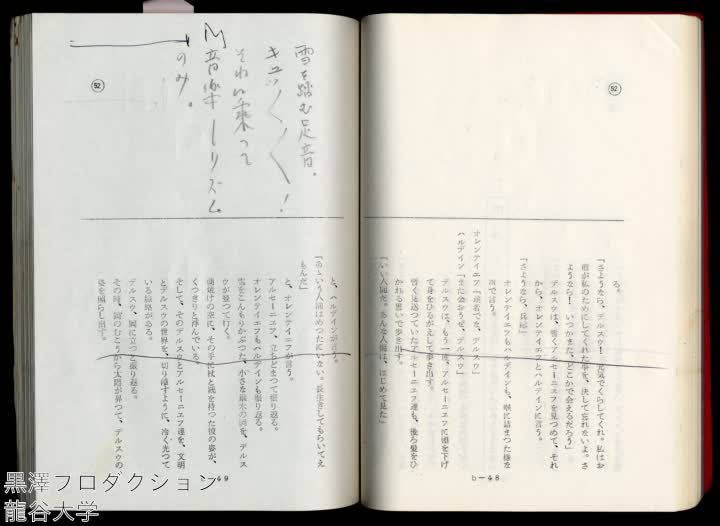 52
る。
「さようなら、デルスウ！　元気でくらしてくれ。私はお
前が私のためにしてくれた事を、決して忘れないよ。さ
ようなら！　いつかまた、どこかで会えるだろう」
デルスウは、暫くアルセーニエフを見つめて、それ
から、オレンテイエフとハルデインに言う。
「さようなら、兵隊」
オレンテイエフもハルデインも、喉に詰まつた様な
声で言う。
オレンテイエフ「達者でな、デルスウ」
ハルデイン「また会おうぜ、デルスウ」
デルスウは、もう一度、アルセーニエフに頭を下げ
て身をひるがえして歩き出す。
暫く見送つていたアルセーニエフ達も、後ろ髪をひ
かれる思いで歩き出す。
「いい人間だ。あんな人間は、はじめて見た」
b―48
雪を踏む足音。
キュッ〱〱！
それに乗って
M音楽―リズム
のみ。
52
と、ハルデインが言う。
「あゝいう人間はめつたにいない。長生きしてもらいてえ
もんだ」
と、オレンテイエフが言う。
アルセーニエフ、立ちどまつて振り返る。
オレンテイエフもハルデインも振り返る。
雪をこんもりかぶつた、小さな最末の岡を、デルス
ウが登つて行く。
朝焼けの空に、その手に杖と銃を持つた彼の姿が、
くつきりと浮んでいる。
そして、そのデルスウとアルセーニエフ達を、文明
とデルスウの世界を、切り離すように、冷く光つて
いる線路がある。
デルスウ、岡に立つと振り返る。
その時、岡のむこうから太陽が昇つて、デルスウの
姿を照らし出す。
49
黒澤プロダクション
龍谷大学